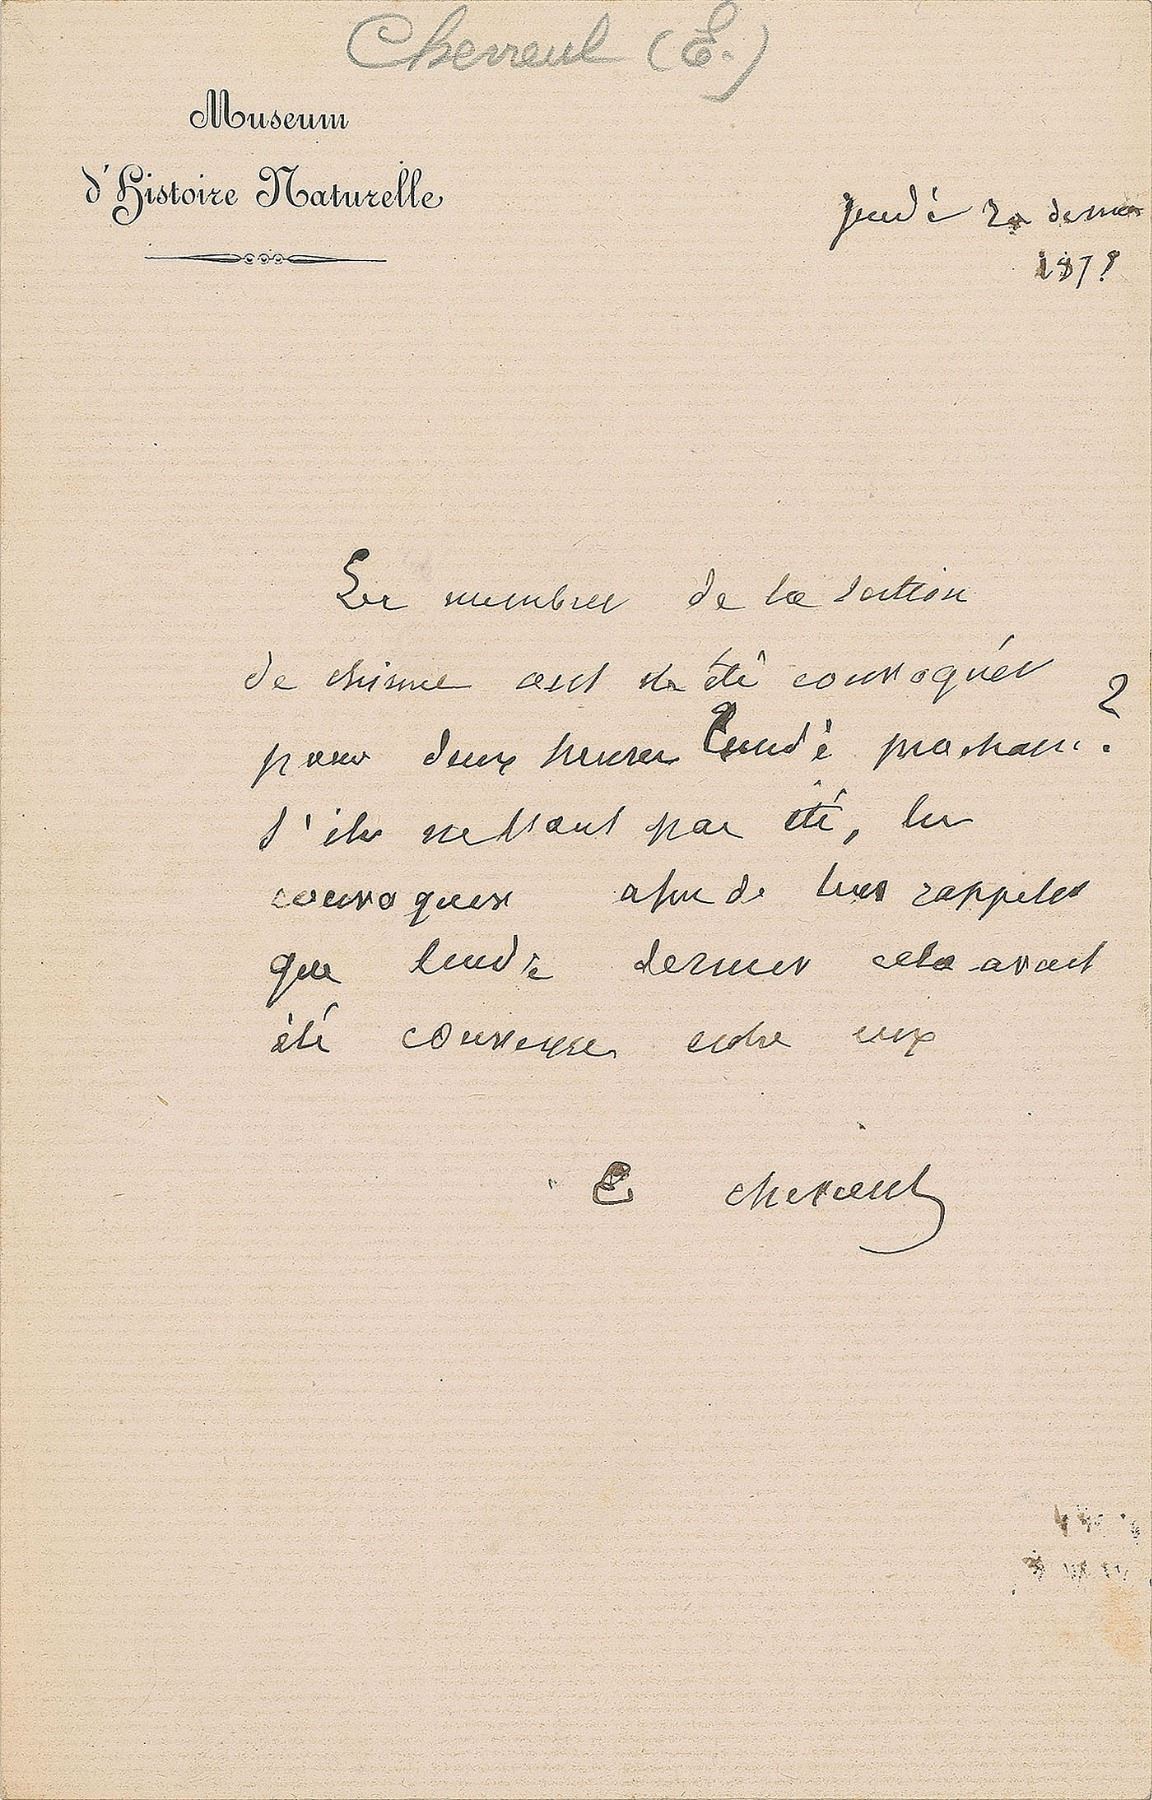 Chevreul (E.)
Museum
d'Histoire Naturelle
jeudi 20 de mars
1879
Les membres de la section
de chimie ont été convoqués
pour deux heures lundi prochain ?
S'ils ne l'ont pas été, les
convoquer afin de leur rappeler
que lundi dernier cela avait
été convenu entre eux
E Chevreul